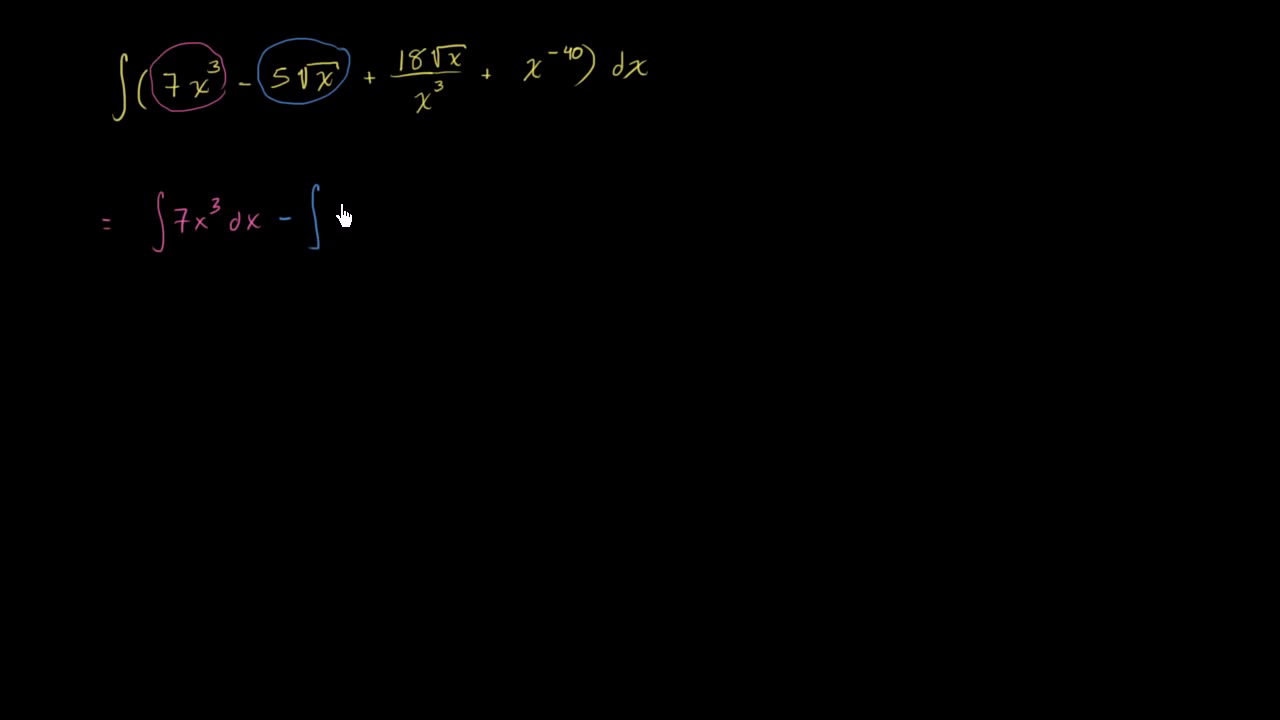 ∫(7x³ - 5√x + 18√x/x³ + x⁻⁴⁰) dx
= ∫7x³ dx - ∫